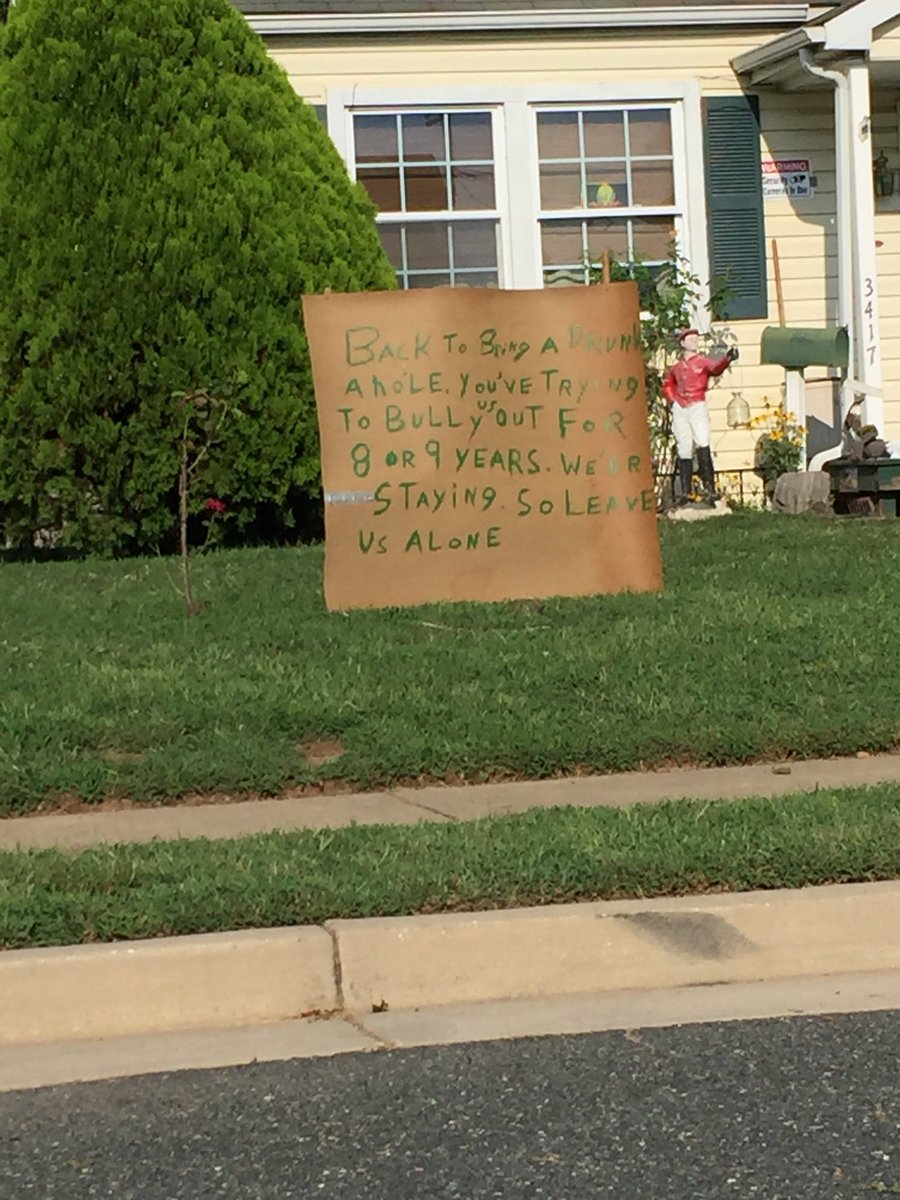 WARNING
Security
Cameras In Use
3417
BACK TO BEING A DRUNK
AHOLE. YOU'VE TRYING
TO BULLY US OUT FOR
8 OR 9 YEARS. WE'ER
STAYING. SO LEAVE
US ALONE